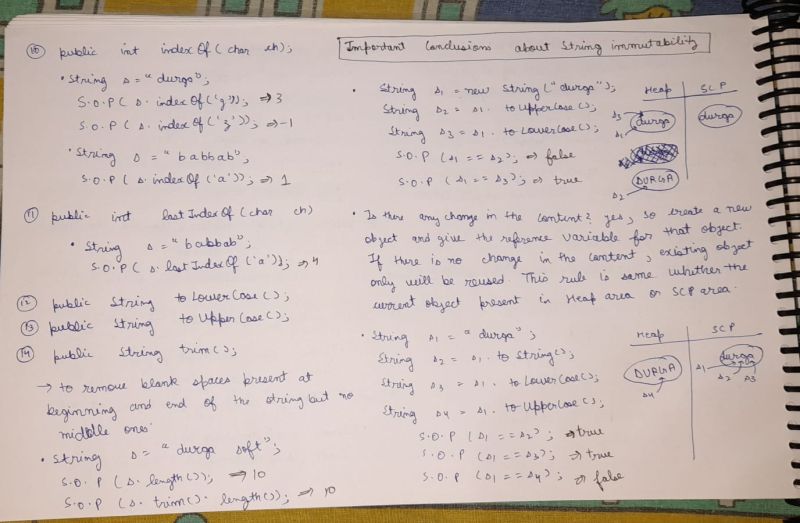 10 public int indexOf (char ch);
• String s = "durga";
S.O.P ( s. indexOf('g')); ⇒ 3
S.O.P ( s. indexOf('z')); ⇒ -1
• String s = "babbab";
S.O.P ( s. indexOf('a')); ⇒ 1
11 public int lastIndexOf (char ch)
• String s = "babbab";
S.O.P ( s. lastIndexOf ('a')); ⇒ 4
12 public String toLowerCase();
13 public String toUpperCase();
14 public String trim();
→ to remove blank spaces present at
beginning and end of the string but no
middle ones.
• String s = "durga soft";
S.O.P (s. length()); ⇒ 10
S.O.P (s. trim(). length()); ⇒ 10
Important Conclusions about String immutability
• String s1 = new String ("durga");
String s2 = s1. toUpperCase();
String s3 = s1. toLowerCase();
S.O.P (s1 == s2); ⇒ false
S.O.P (s1 == s3); ⇒ true
Heap SCP
s3 durga durga
s1
s2 DURGA
• Is there any change in the content? yes, so create a new
object and give the reference variable for that object.
If there is no change in the content, existing object
only will be reused. This rule is same whether the
current object present in Heap area or SCP area.
• String s1 = "durga";
String s2 = s1. toString();
String s3 = s1. toLowerCase();
String s4 = s1. toUpperCase();
S.O.P (s1 == s2); ⇒ true
S.O.P (s1 == s3); ⇒ true
S.O.P (s1 == s4); ⇒ false
Heap SCP
DURGA durga
s4 s1 s2 s3